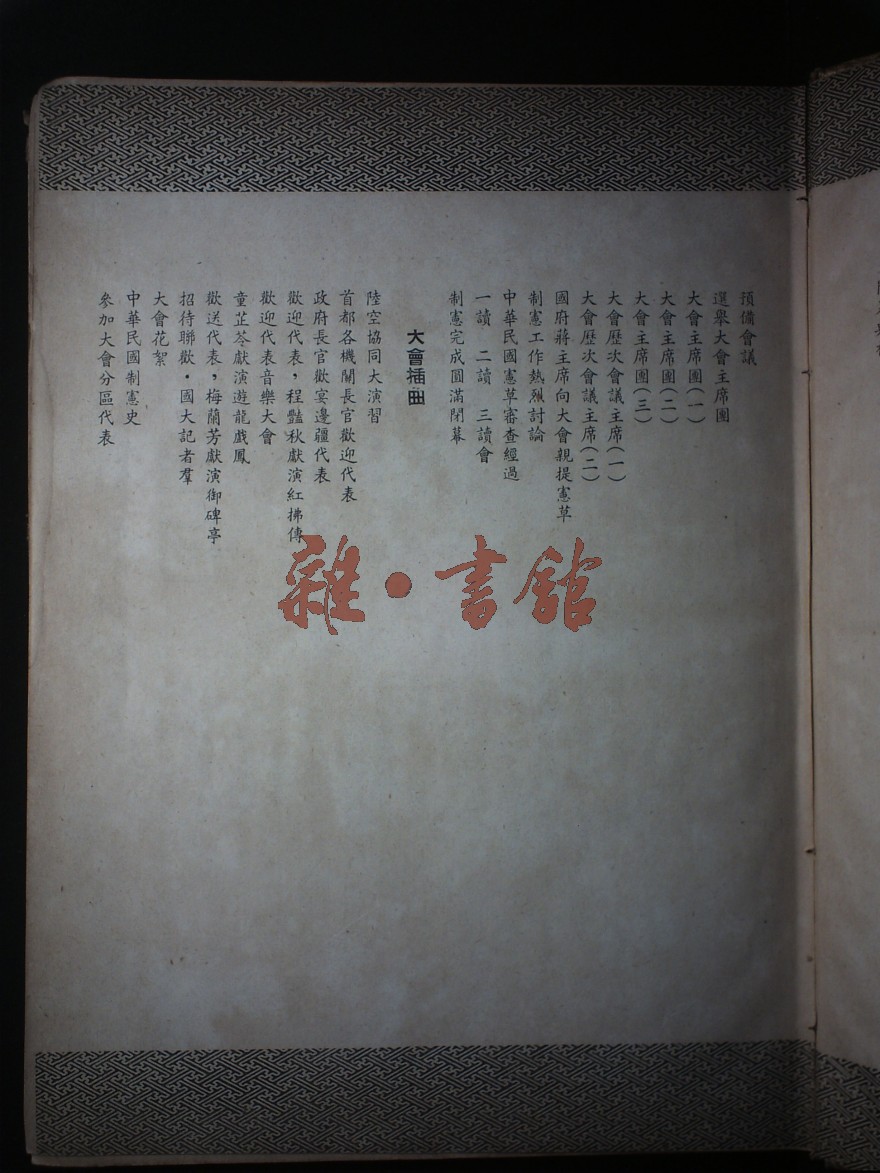 預備會議
選舉大會主席團
大會主席團(一)
大會主席團(二)
大會主席團(三)
大會歷次會議主席(一)
大會歷次會議主席(二)
國府蔣主席向大會親提憲草
制憲工作熱烈討論
中華民國憲草審查經過
一讀 二讀 三讀會
制憲完成圓滿閉幕
大會插曲
陸空協同大演習
首都各機關長官歡迎代表
政府長官歡宴邊疆代表
歡迎代表,程豔秋獻演紅拂傳
歡迎代表音樂大會
童芷苓獻演遊龍戲鳳
歡送代表,梅蘭芳獻演御碑亭
招待聯歡・國大記者羣
大會花絮
中華民國制憲史
參加大會分區代表
雜・書館